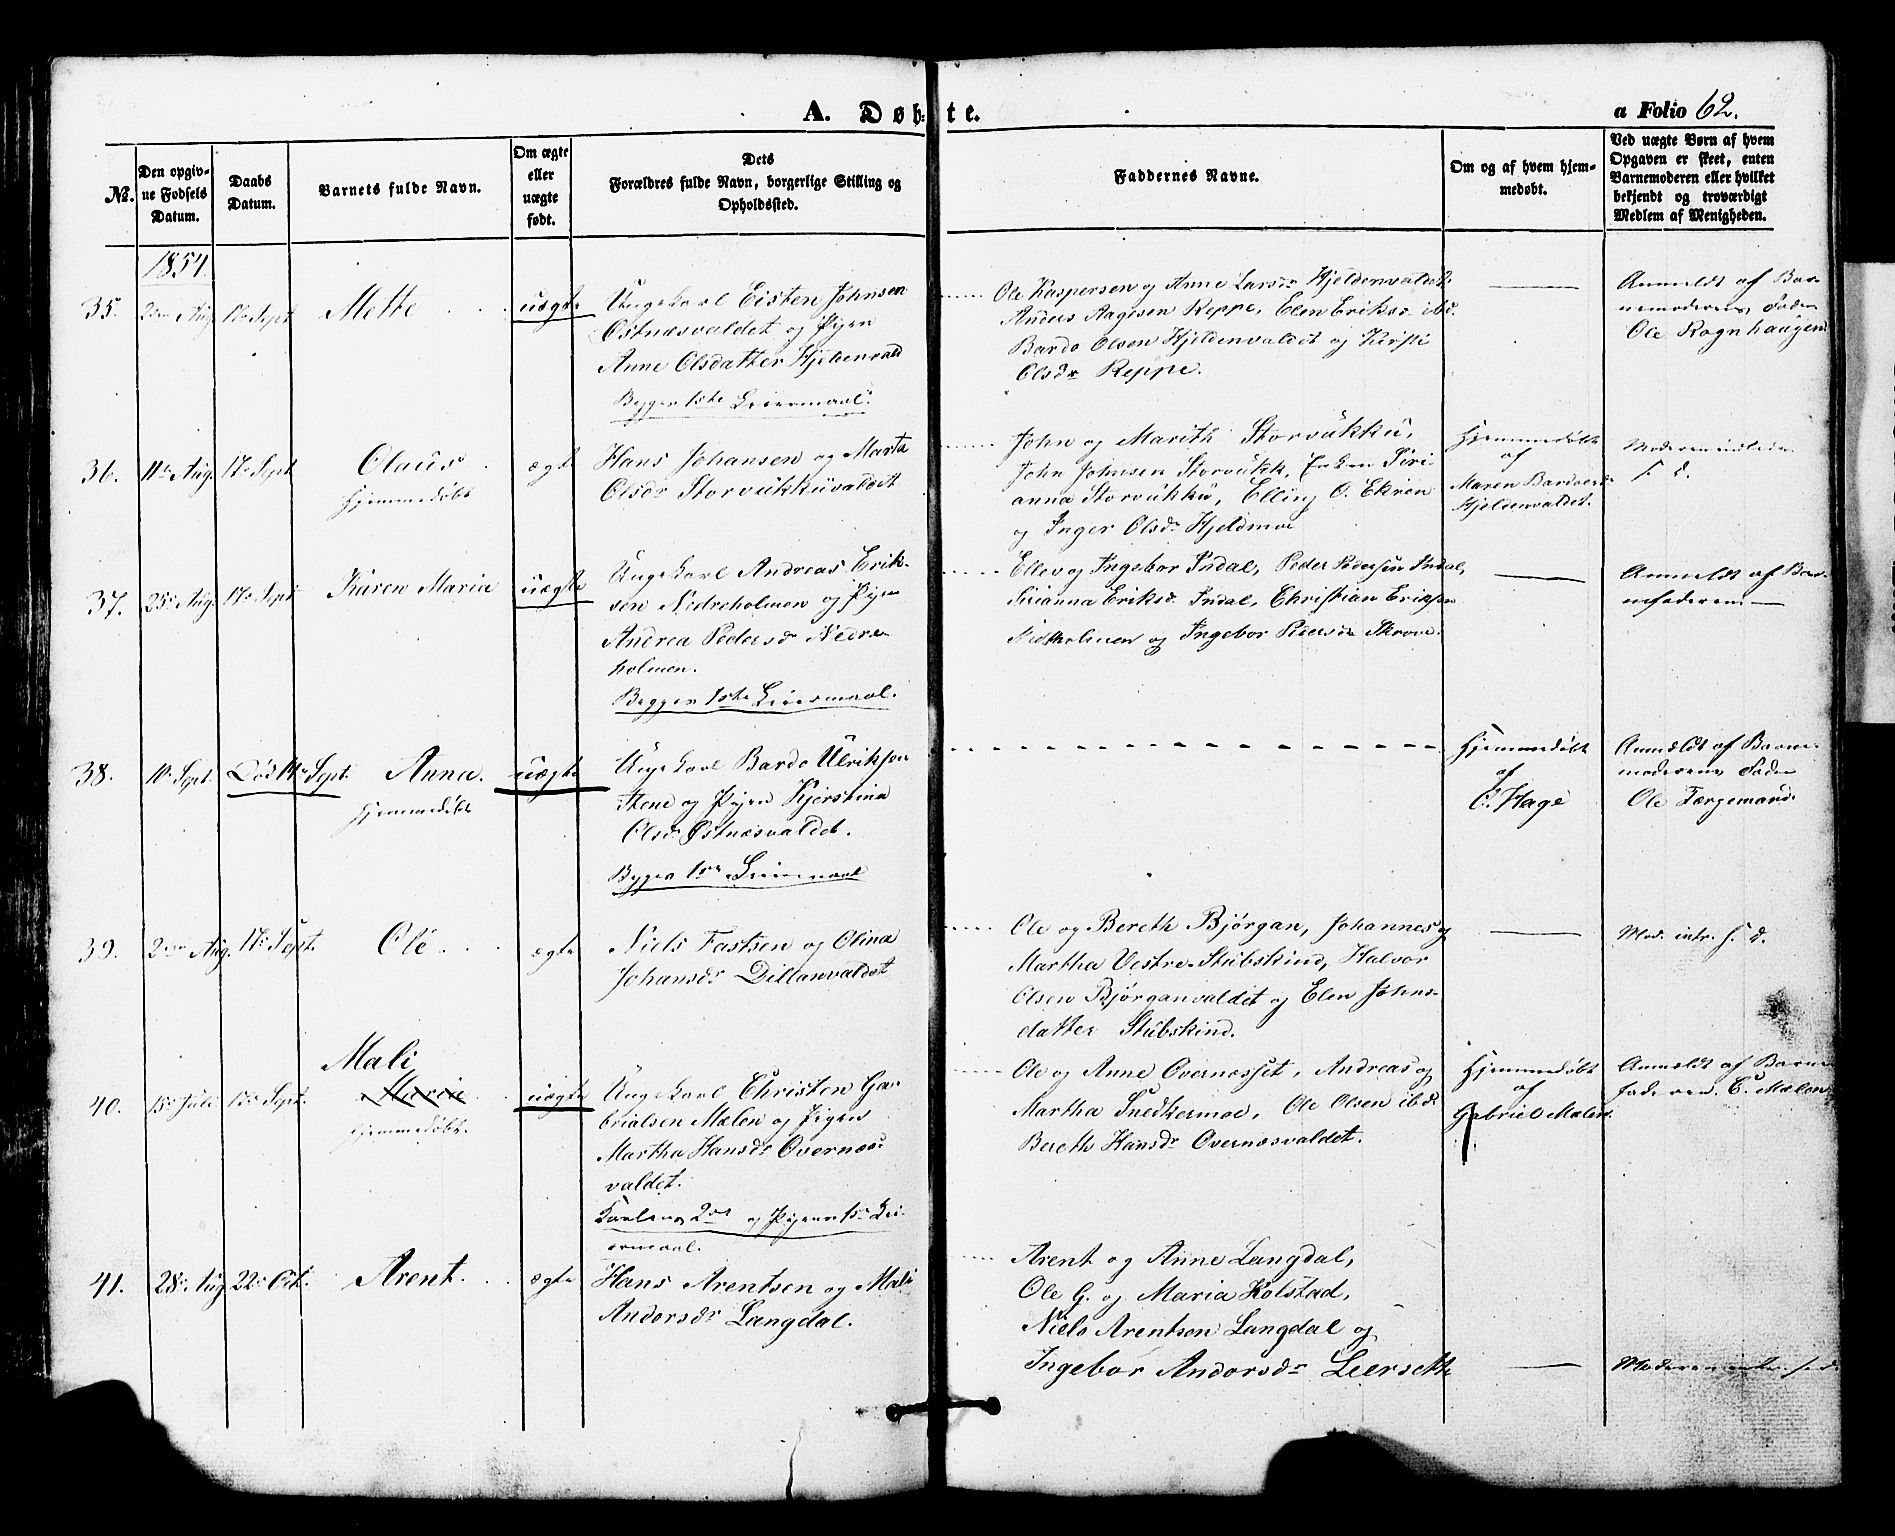 A. Døb-te.
a Folio 62.
No.
Den opgiv-
ne Fødsels
Datum.
Daabs
Datum.
Barnets fulde Navn.
Om ægte
eller
uægte
født.
Dets
Forældres fulde Navn, borgerlige Stilling og
Opholdssted.
Faddernes Navne.
Om og af hvem hjem-
medøbt.
Ved uægte Børn af hvem
Opgaven er skeet, enten
Barnemoderen eller hvilket
bekjendt og troværdigt
Medlem af Menigheden.
1854.
35. Aug. 17de Sept. Mette uægte
Ungekarl Eisten Johnsen
Ostnæsvaldet og Pigen
Anne Olsdatter Hjeldenvald
Begges 1ste Leiermaal.
Ole Kaspersen og Anne Larsdr Hjeldenvaldet.
Anders Aagesen Reppe, Elen Eriksdr ibd.
Bardo Olsen Hjeldenvaldet og Kirsti
Olsdr Reppe.
Anmeldt af Bar-
nemoderens Fader
Ole Rognhaugen
36. 11te Aug. 17de Sept. Olaus ægte
Hjemmedøbt
Hans Johansen og Marta
Olsdr Storvukkuvaldet
John og Marith Storvukku,
John Johnsen Storvukk, Enken Siri-
anna Storvukku, Elling O. Ekren
og Inger Olsdr Hjeldmoe
Hjemmedøbt
af
Maren Bardosdr
Hjeldenvaldet.
Moderen indleder
s. d.
37. 25de Aug. 17de Sept. Karen Maria uægte
Ungekarl Andreas Erik-
sen Nedreholmen og Pigen
Andrea Pedersdr Nedre-
holmen.
Begges 1ste Leiermaal.
Ellev og Ingebor Indal, Peder Pedersen Indal,
Sirianna Eriksdr Indal, Christian Eriksen
Nedreholmen og Ingebor Pedersdr Skrove.
Anmeldt af Bar-
nefaderen
38. 10de Sept. Død 14de Sept. Anna. uægte
Hjemmedøbt
Ungekarl Bardo Ulriksen
Stene og Pigen Kjerstina
Olsdr Østnæsvaldet.
Begges 1ste Leiermaal
Hjemmedøbt
af
C. Hage
Anmeldt af Barne-
moderens Fader
Ole Færgemand.
39. Aug. 17de Sept. Ole ægte
Niels Fastsen og Olina
Johansdr Dillanvaldet
Ole og Bereth Bjørgan, Johannes og
Martha Vestre-Stubskind, Halvor
Olsen Bjørganvaldet og Elen Johns-
datter Stubskind.
Mod. intr. s. d.
Mali
40. 15de Juli 17de Sept. Marie uægte
Hjemmedøbt.
Ungekarl Christen Ga-
brielsen Mælen og Pigen
Martha Hansdr Overnæs-
valdet.
Karlens 2det og Pigens 1ste Lei-
ermaal.
Ole og Anne Overnesset, Andreas og
Martha Snedkermoe, Ole Olsen ibd.
Bereth Hansdr Overnæsvaldet.
Hjemmedøbt
af
Gabriel Mælen.
Anmeldt af Barne-
faderen. C. Mælen
41. 28de Aug. 22de Oct. Arent. ægte
Hans Arentsen og Mali
Andorsdr Langdal.
Arent og Anne Langdal,
Ole G. og Maria Kolstad,
Niels Arentsen Langdal og
Ingebor Andorsdr Leersette
Moderen intr. s. d.